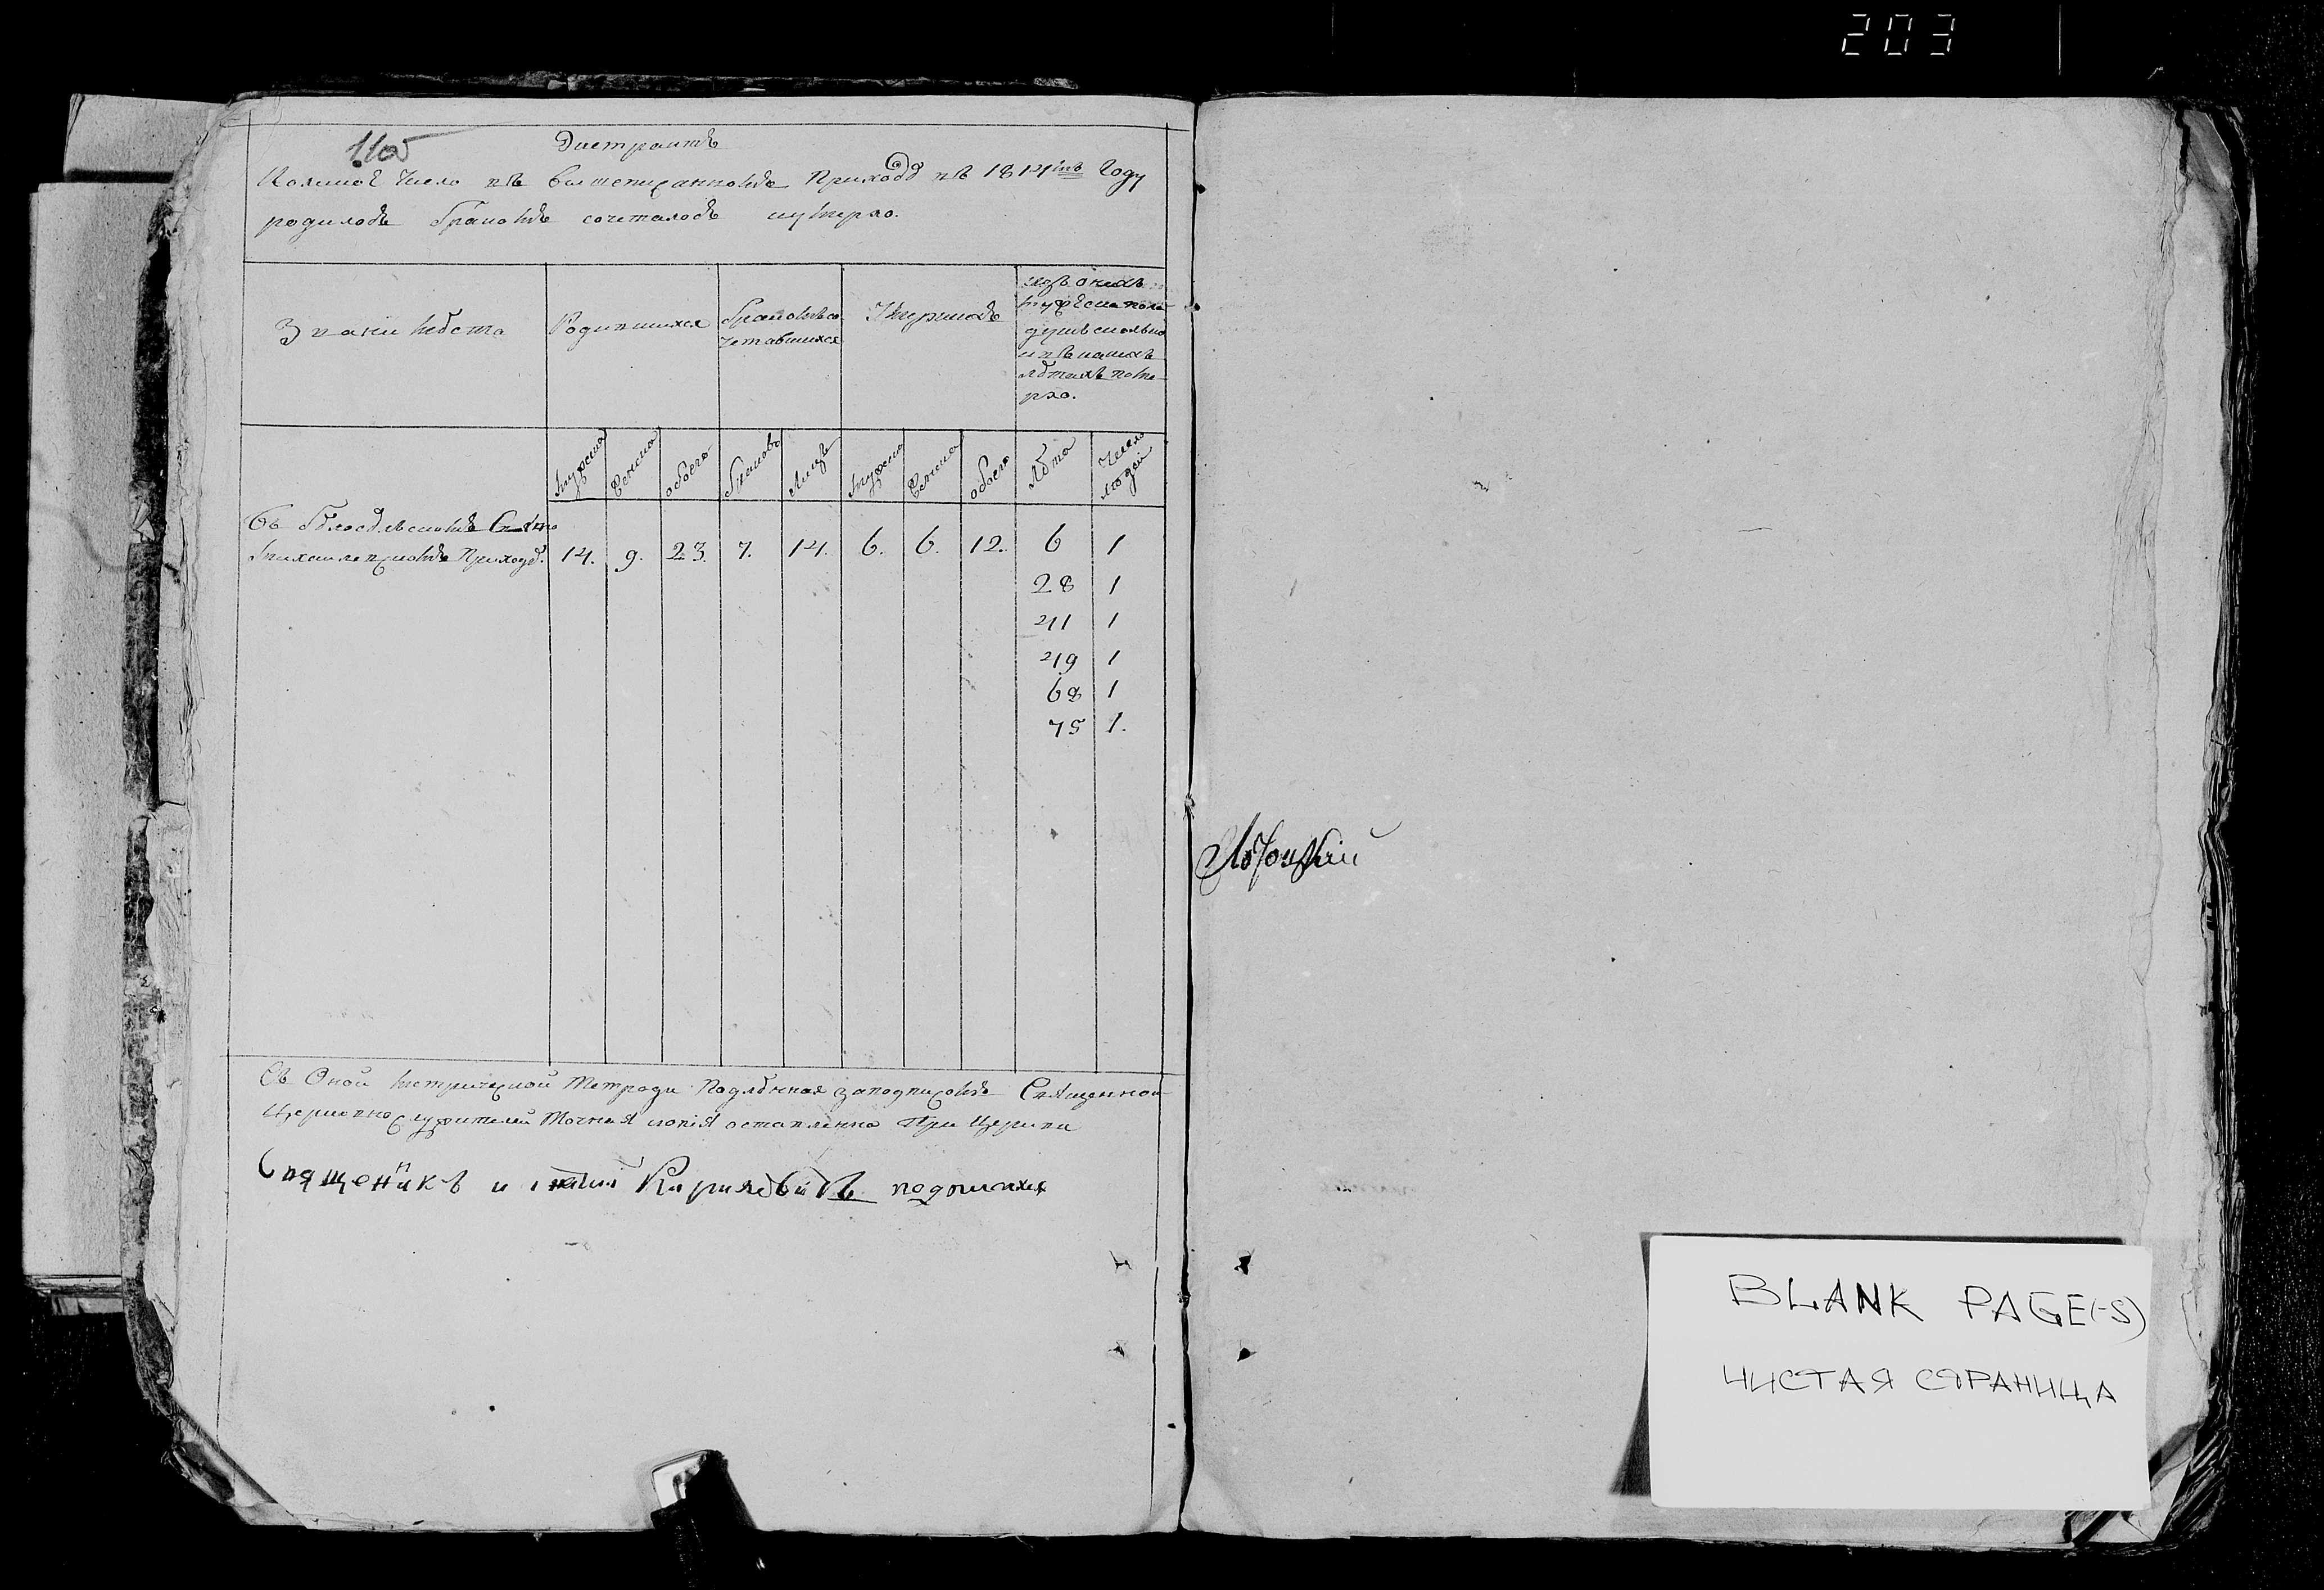 203
Экстрактъ
Коликое число въ вышеписанномъ Приходѣ въ 1814мъ Году
родилось бракомъ сочеталось и умерло.
Звани мѣста
Родившихся
бракомъ со-
четавшихся
Умершихъ
изъ оныхъ
мужеска пола
душъ сколько
и въ какихъ
лѣтахъ поме-
рло.
мужска
женска
обоего
браковъ
лицъ
мужска
женска
обоего
лѣта
число
людей
Михаилевскомъ Приходѣ. 14. 9. 23. 7. 14. 6. 6. 12. 6 1
28 1
41 1
49 1
68 1
75 1.
Съ Оной метрической тетради Подлѣнная заподписомъ Священно-
Церковнослужителей Точная копія оставленна При Церкви
Священикъ подписался
BLANK PAGE(-S)
ЧИСТАЯ СТРАНИЦА